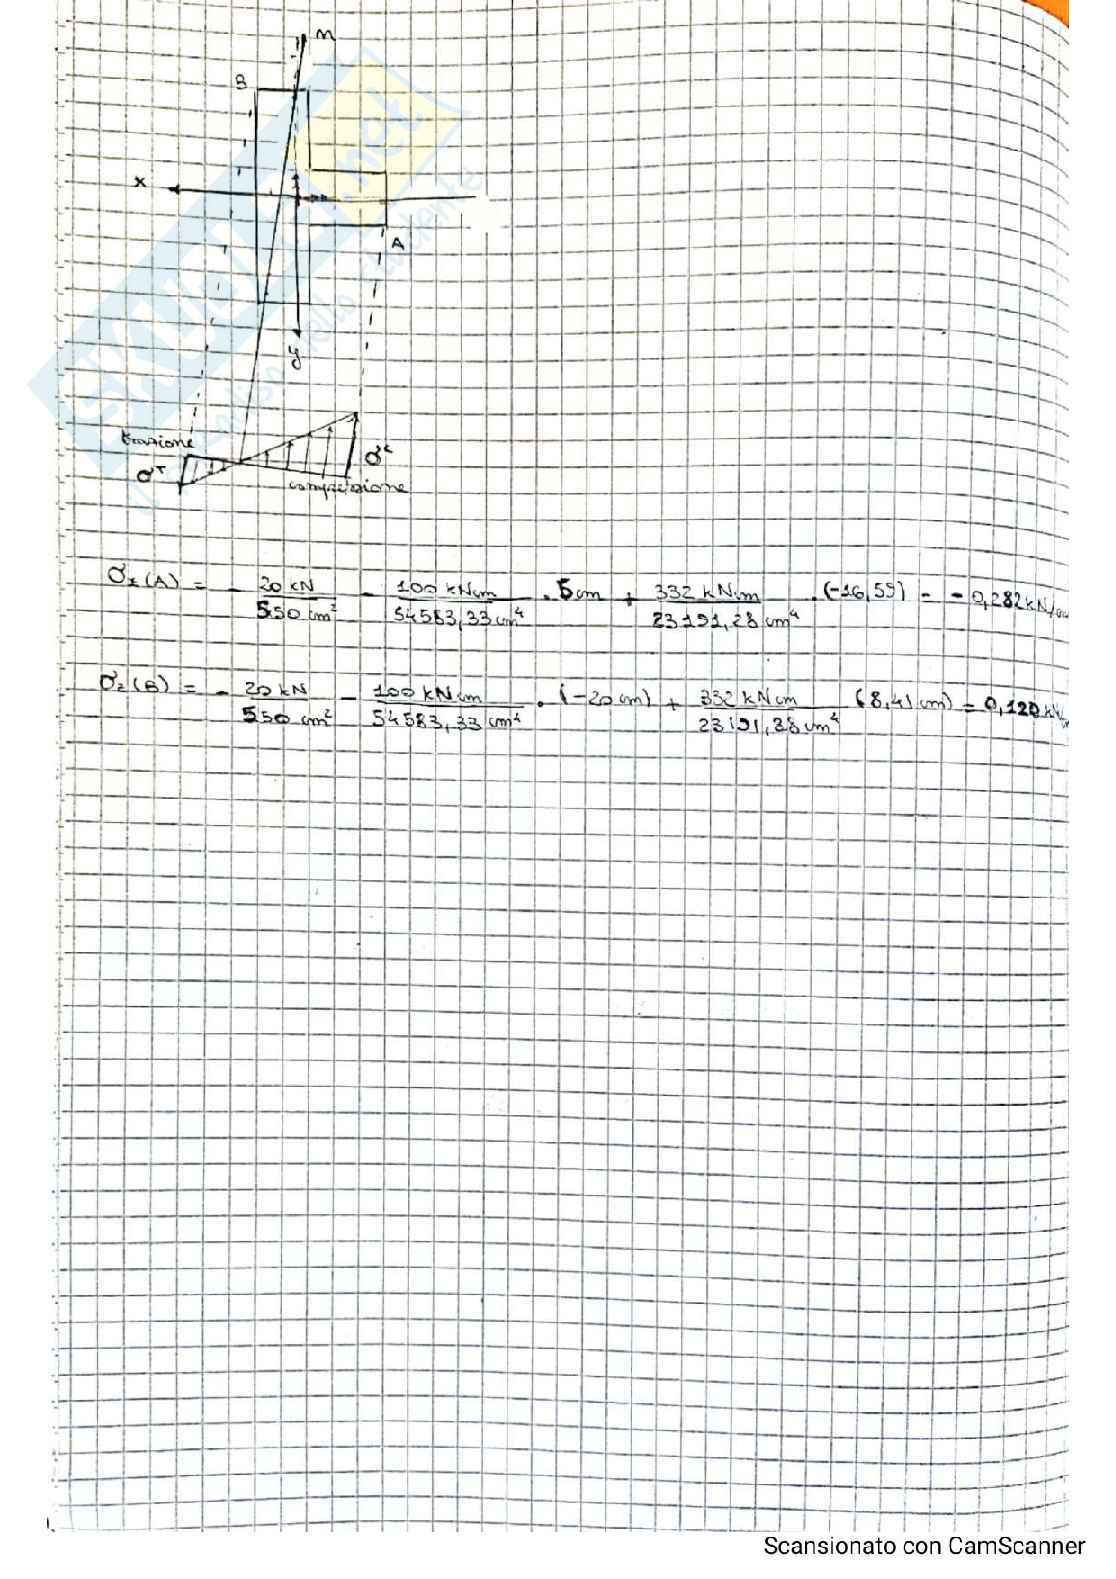 n
B
x
A
y
trazione
σᵀ
σᶜ
compressione
σz (A) = - 20 kN / 550 cm² - 100 kNcm / 54583,33 cm⁴ · 5 cm + 332 kNcm / 23191,28 cm⁴ · (-16,59) = - 0,282 kN/cm
σz (B) = - 20 kN / 550 cm² - 100 kN cm / 54583,33 cm⁴ · (-20 cm) + 332 kN cm / 23191,28 cm⁴ (8,41 cm) = 0,120 kN
SKUOLA.net
Scansionato con CamScanner